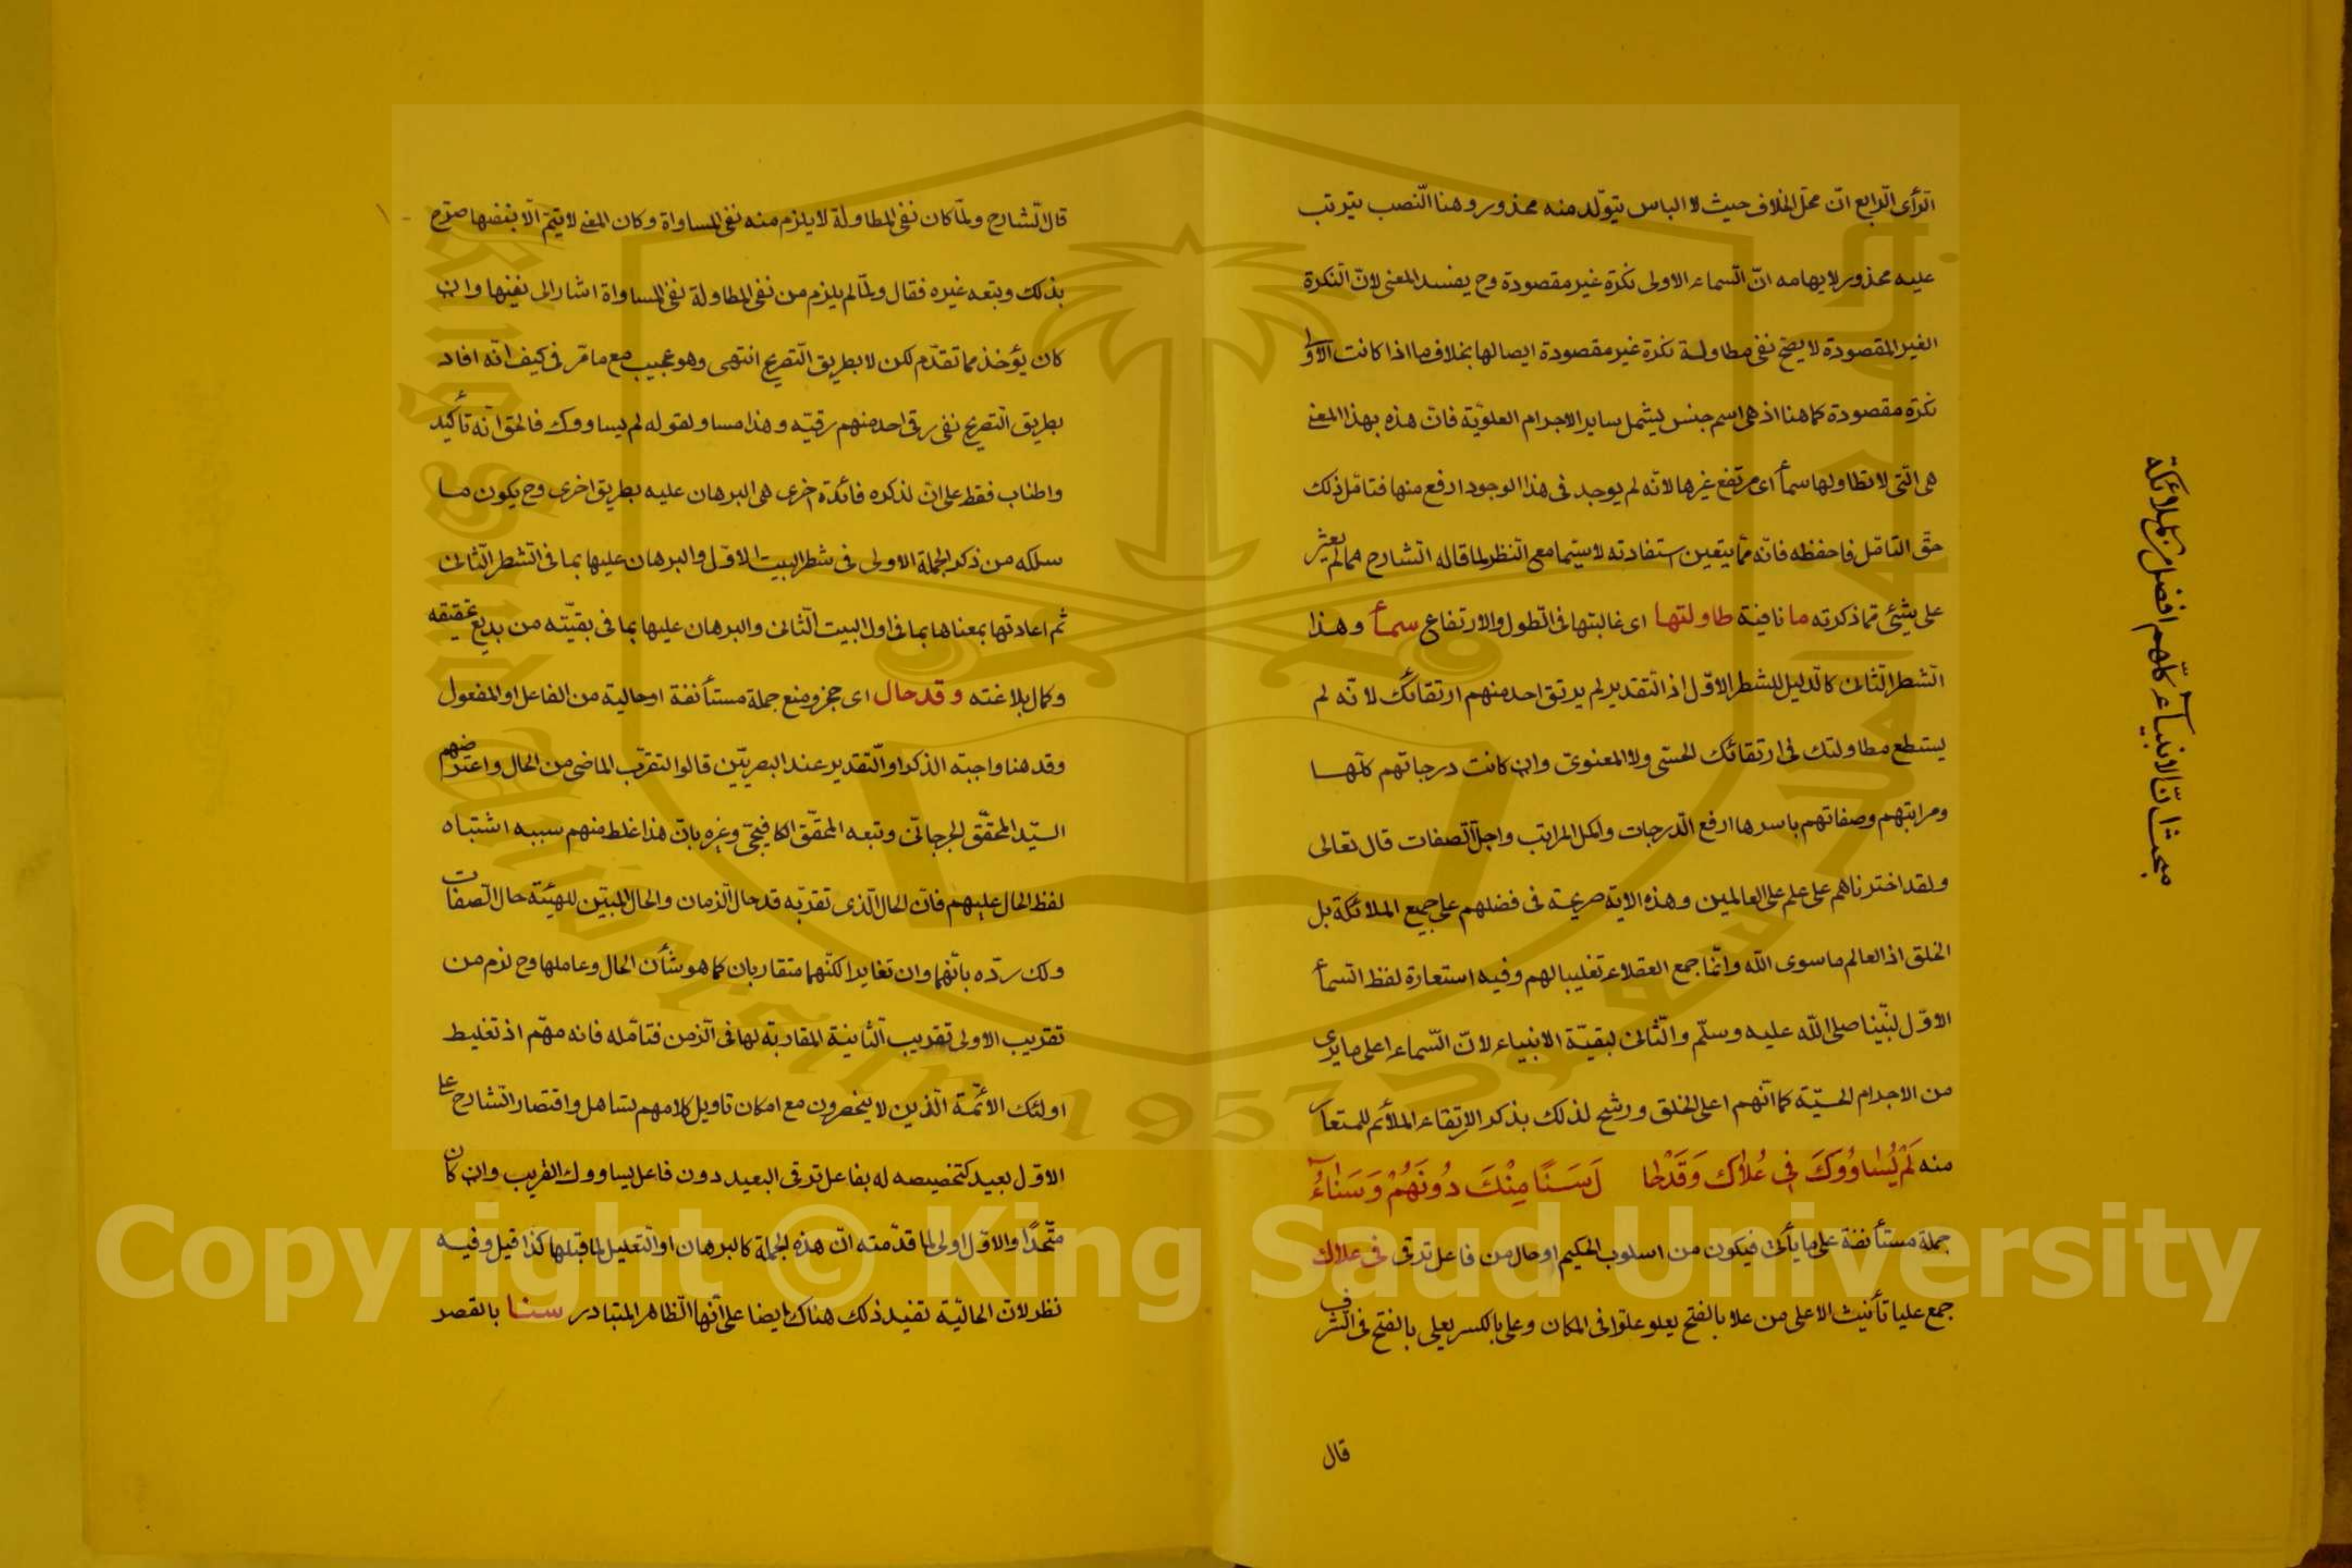 الرأى الرابع انّ محل الخلاف حيث لا الباس يتولد منه محذور وهنا النصب يترتب
عليه محذور لايهامه انّ السماء الاولى نكرة غير مقصودة وح يفسد المعنى لانّ النكرة
الغير المقصودة لا يصح نفى مطاولة نكرة غير مقصودة ايصالها بخلاف ما اذا كانت الاولى
نكرة مقصودة كما هنا اذ هى اسم جنس يشمل ساير الاجرام العلوية فان هذه بهذا المعنى
هى التى لا تطاولها سمأ اى مرتفع غيرها لانه لم يوجد فى هذا الوجود ارفع منها فتامّل ذلك
حق التامّل فاحفظه فانه مما يتعين استفادته لا سيّما مع النظر لما قاله الشارح مما لم يعثر
على شئ مما ذكرته ما نافية طاولتها اى غالبتها فى الطول والارتفاع سمأ وهذا
الشطر الثانى كالدليل للشطر الاول اذ التقدير لم يرتق احد منهم ارتقائك لانّه لم
يستطع مطاولتك فى ارتقائك الحسّى ولا المعنوى وان كانت درجاتهم كلّها
ومراتبهم وصفاتهم باسرها ارفع الدرجات واكمل المراتب واجلّ الصفات قال تعالى
ولقد اخترناهم على علم على العالمين وهذه الاية صريحة فى فضلهم على جميع الملائكة بل
الخلق اذ العالم ما سوى الله وانّما جمع العقلاء تغليبا لهم وفيه استعارة لفظ السمأ
الاوّل لنبّينا صلى الله عليه وسلّم والثانى لبقيّة الانبياء لانّ السّماء اعلى ما يرى
من الاجرام الحسيّة كما انّهم اعلى الخلق ورشح لذلك بذكر الارتقاء الملائم للمستعار
منه لَمْ يُسٰاوُوكَ فِى عُلاٰكَ وَقَدْحٰا لَ سَنًا مِنْكَ دُونَهُمْ وَسَنٰاۤءُ
جملة مستأنفة على ما يأتى فيكون من اسلوب الحكيم او حال من فاعل ترقى فى علاك
جمع عليا تأنيث الاعلى من علا بالفتح يعلو علوّا فى المكان وعلى بالكسر يعلى بالفتح فى الشرف
قال
مبحث انّ الانبياۤء كلّهم افضل من الملائكة
قال الشارح ولمّا كان نفى المطاولة لا يلزم منه نفى المساواة وكان المعنى لا يتمّ الّا بنفيها صرّح
بذلك وتبعه غيره فقال ولمّا لم يلزم من نفى المطاولة نفى المساواة اشار الى نفيها وان
كان يؤخذ مما تقدّم لكن لا بطريق التصريح انتهى وهو عجيب مع ما مرّ فى كيف انّه افاد
بطريق التصريح نفى رقى احد منهم رقيّه وهذا مساو لقوله لم يساووك فالحق انّه تأكيد
واطناب فقط على ان لذكره فائدة اخرى هى البرهان عليه بطريق اخرى وح يكون ما
سلكه من ذكر الجملة الاولى فى شطر البيت الاوّل والبرهان عليها بما فى الشطر الثانى
ثم اعادتها بمعناها بما فى اول البيت الثانى والبرهان عليها بما فى بقيّته من بديع تحقيقه
وكمال بلاغته وقد حال اى حجز ومنع جملة مستأنفة او حالية من الفاعل او المفعول
وقد هنا واجبته الذكر او التقدير عند البصريّين قالوا لتقرّب الماضى من الحال واعترضهم
السيّد المحقّق الجرجانى وتبعه المحقّق الكافيجى وغيره بانّ هذا غلط منهم سببه اشتباه
لفظ الحال عليهم فانّ الحال الّذى تقربّه قد حال الزمان والحال المبيّن للهيئة حال الصفات
ولك ردّه بانّهما وان تغايرا لكنّهما متقاربان كما هو شأن الحال وعاملها وح لزم من
تقريب الاولى تقريب الثانية المقاربة لها فى الزمن فتامّله فانه مهمّ اذ تغليط
اولئك الائمّة الّذين لا ينحصرون مع امكان تاويل كلامهم تساهل واقتصار الشارح على
الاوّل بعيد كتخصيصه له بفاعل ترقى البعيد دون فاعل يساووك القريب وان كان
متّحدًا والاوّل اولى لما قدّمته انّ هذه الجملة كالبرهان او التعليل لما قبلها كذا قيل وفيه
نظر لانّ الحاليّة تفيد ذلك هناك ايضا على انّها الظاهر المتبادر سنا بالقصر
King Saud University
1957
جامعة الملك سعود
Copyright © King Saud University